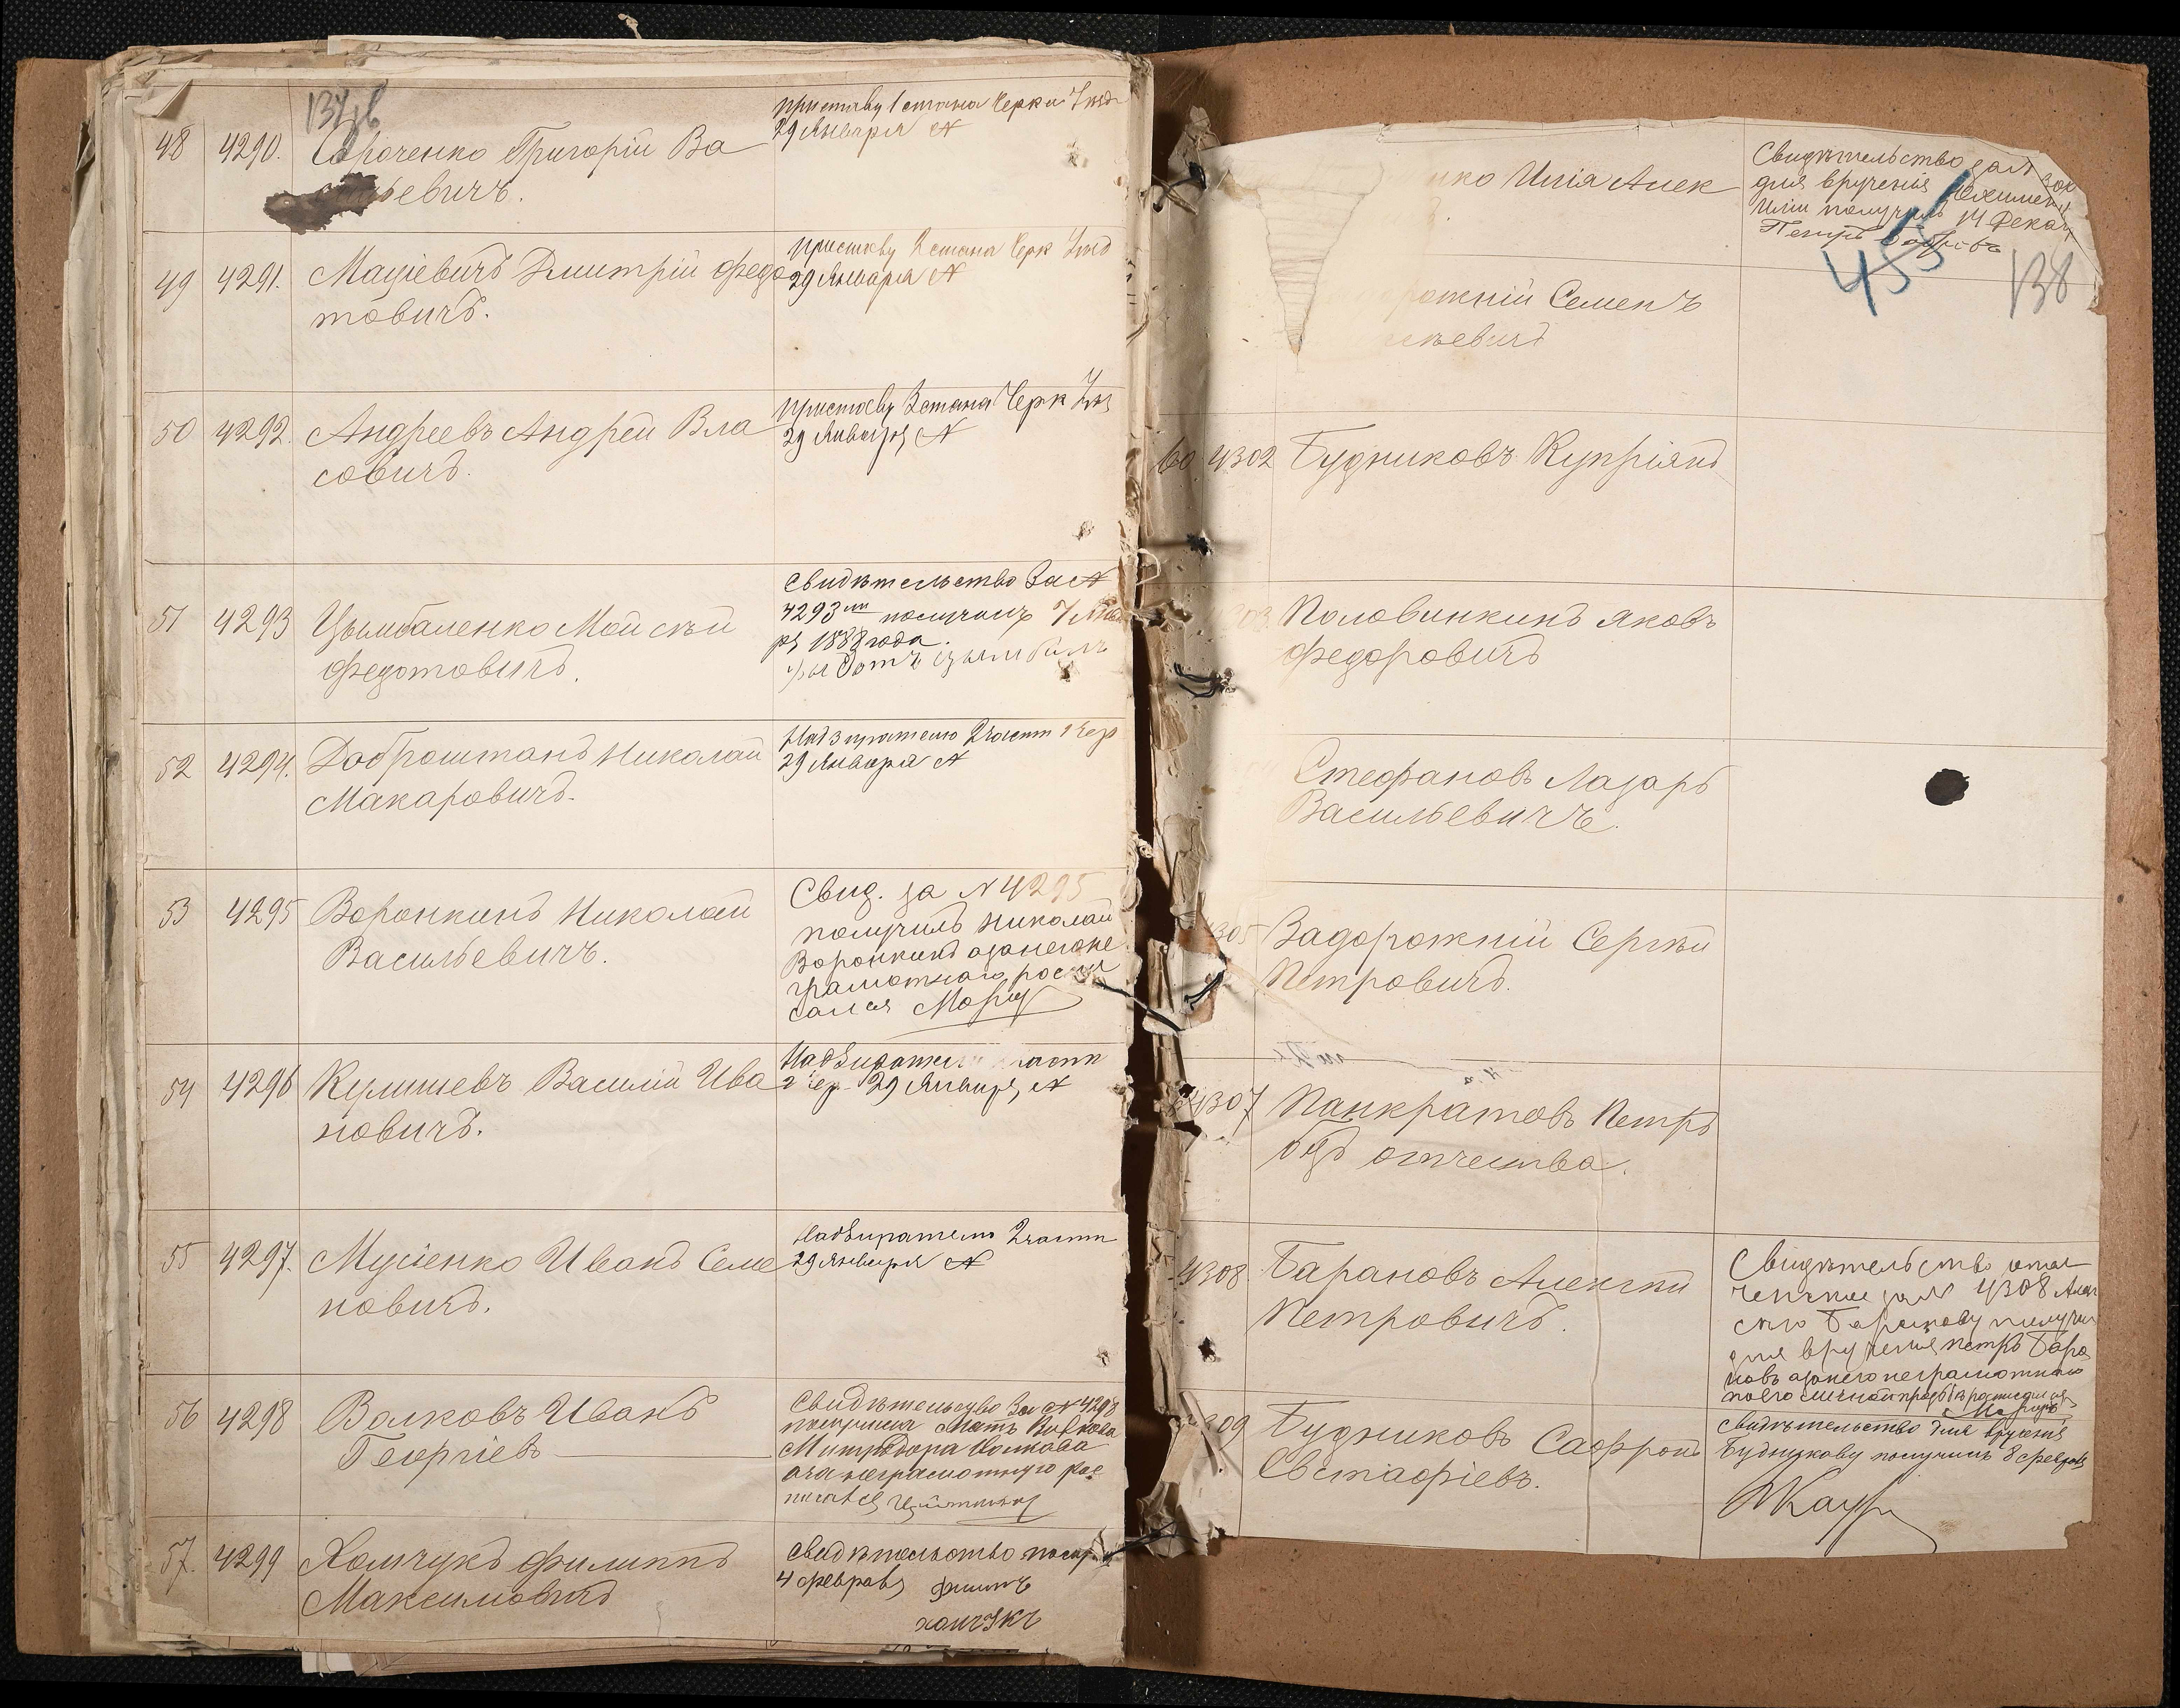 48 4290. Сороченко Григорій Ва
евичъ.
приставу 1 стана Черк Уезд
29 Января №
49 4291. Маціевичъ Дмитрій Федо
товичъ.
приставу 2 стана Черк Уезд
29 Января №
50 4292. Андреевъ Андрей Вла
совичъ.
приставу 3 стана Черк Уез
29 Января №
51 4293 Цымбаленко Мойсѣй
Федотовичъ.
Свидѣтельство За №
4293 получилъ 7
1888 года.
52 4294. Доброштанъ Николай
Макаровичъ.
Надзирателю 2 част
29 Января №
53 4295 Воронкинъ Николай
Васильевичъ.
Свид. за № 4295
получилъ Николай
Воронкинъ а за него не
грамотнаго роспи
сался
54 4296 Кулишевъ Василій Ива
новичъ.
29 Января №
55 4297. Мусіенко Иванъ Семе
новичъ.
Надзирателю 2 части
29 Января №
56 4298 Волковъ Иванъ
Георгіевъ
Свидѣтельство За № 4298
Мать Волкова
Волкова
57. 4299 Хомчукъ Филиппъ
Максимовичъ
Свидѣтельство получ
4 февраля
хомчукъ
нко Илія Алек
Свидѣтельство за №
для врученія
Иліи получилъ 14
Петръ
455
138
рожній Семенъ
евичъ
60 4302 Будниковъ Купріянъ
303 Половинкинъ Яковъ
Федоровичъ
Стефановъ Лазарь
Васильевичъ.
305 Задорожній Сергѣй
Петровичъ.
4307 Панкратовъ Петръ
безъ отчества.
4308 Барановъ Алексѣй
Петровичъ.
Свидѣтельство
за № 4308 Алек
сѣю Баранову получи
для врученія Петръ Бара
новъ а за него неграмотнаго
по его личной просьбѣ росписался
309 Будниковъ Софронъ
Евстафіевъ.
свидѣтельство для врученія
Будникову получилъ 8 февраля